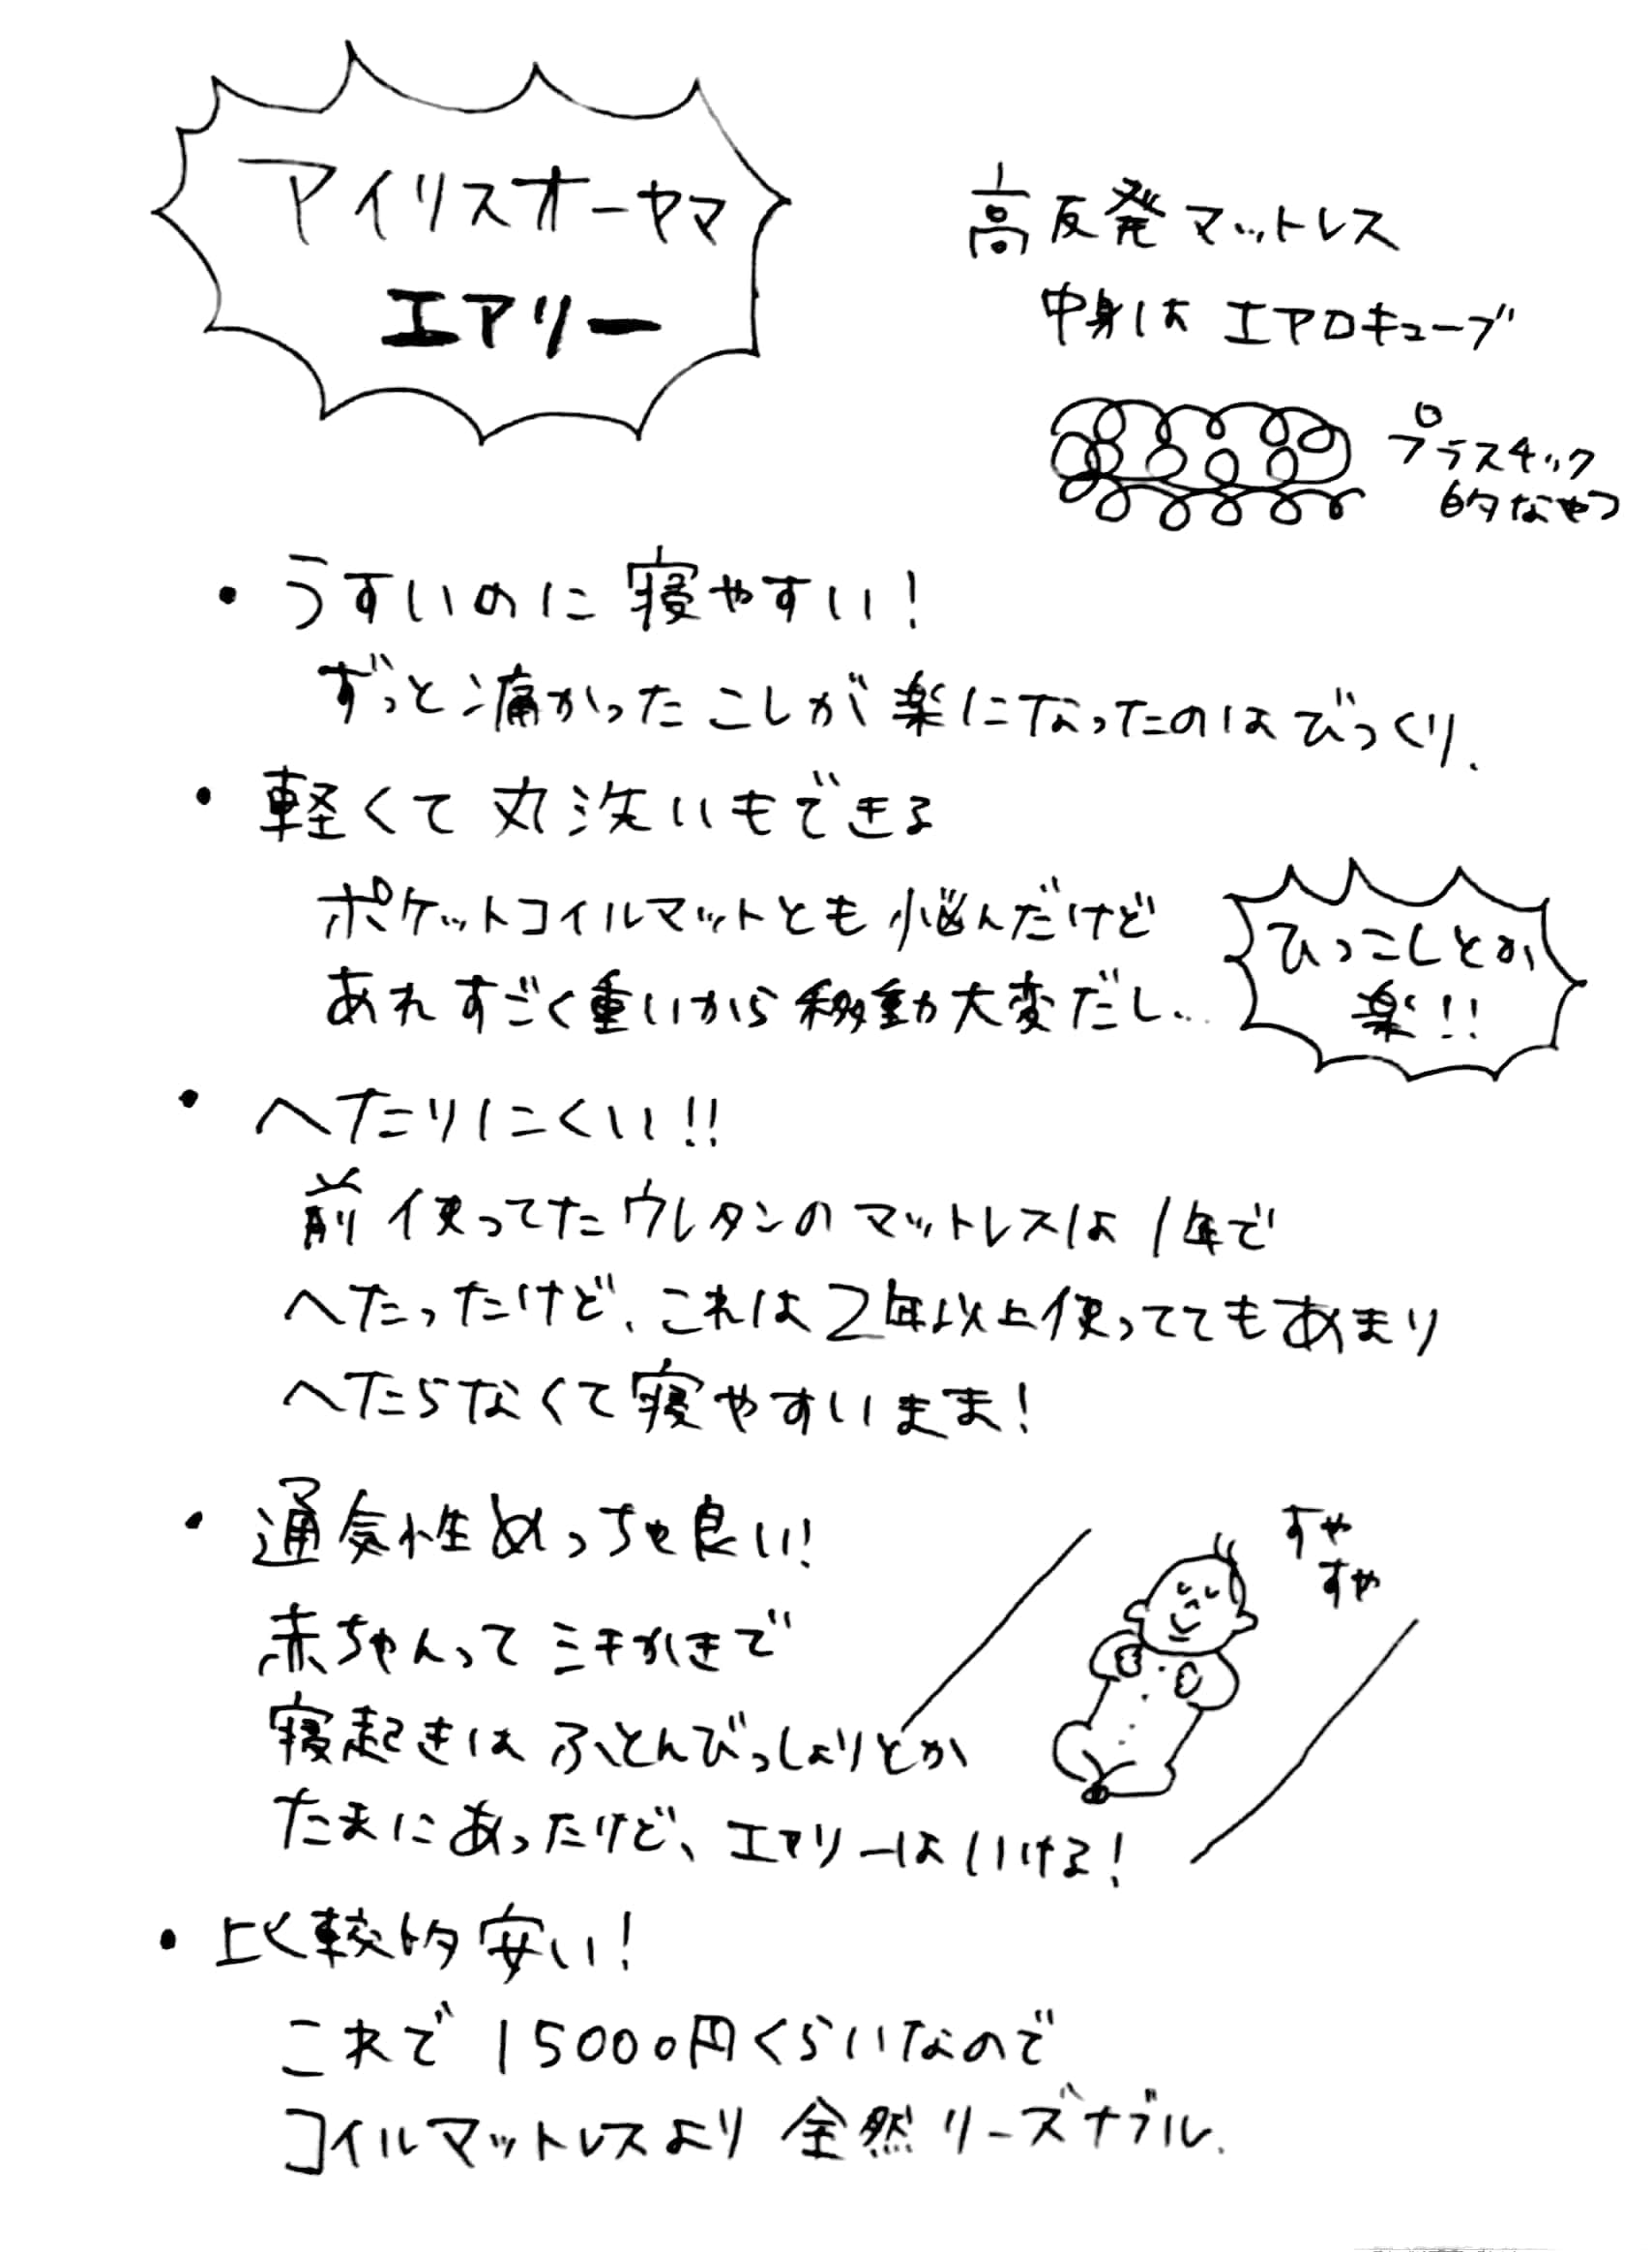 アイリスオーヤマ
エアリー
高反発マットレス
中身は エアロキューブ
プラスチック
的なやつ
・うすいのに寝やすい!
ずっと痛かったこしが楽になったのはびっくり.
・軽くて丸洗いもできる
ポケットコイルマットとも悩んだけど
あれすごく重いから移動大変だし…
ひっこしとか
楽!!
・へたりにくい!!
前使ってたウレタンのマットレスは1年で
へたったけど、これは2年以上使っててもあまり
へたらなくて寝やすいまま!
・通気性めっちゃ良い!
赤ちゃんって汗かきで
寝起きはふとんびっしょりとか
たまにあったけど、エアリーはいける!
すや
すや
・比較的安い!
これで15000円くらいなので
コイルマットレスより全然リーズナブル.